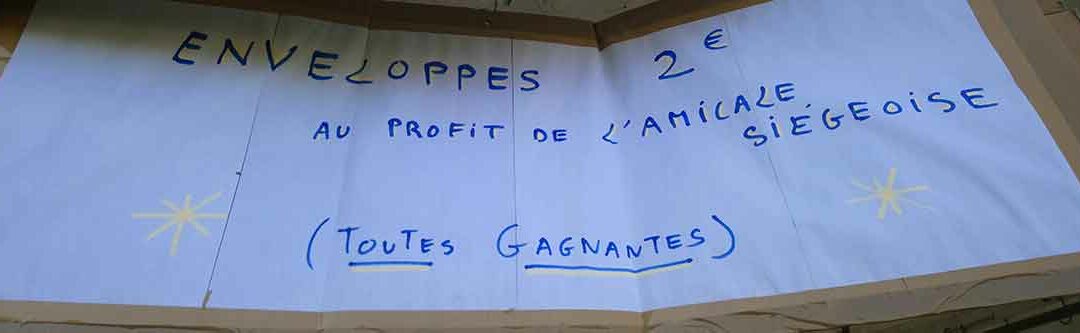 ENVELOPPES 2 €
AU PROFIT DE L'AMICALE
SIÉGEOISE
(TOUTES GAGNANTES)